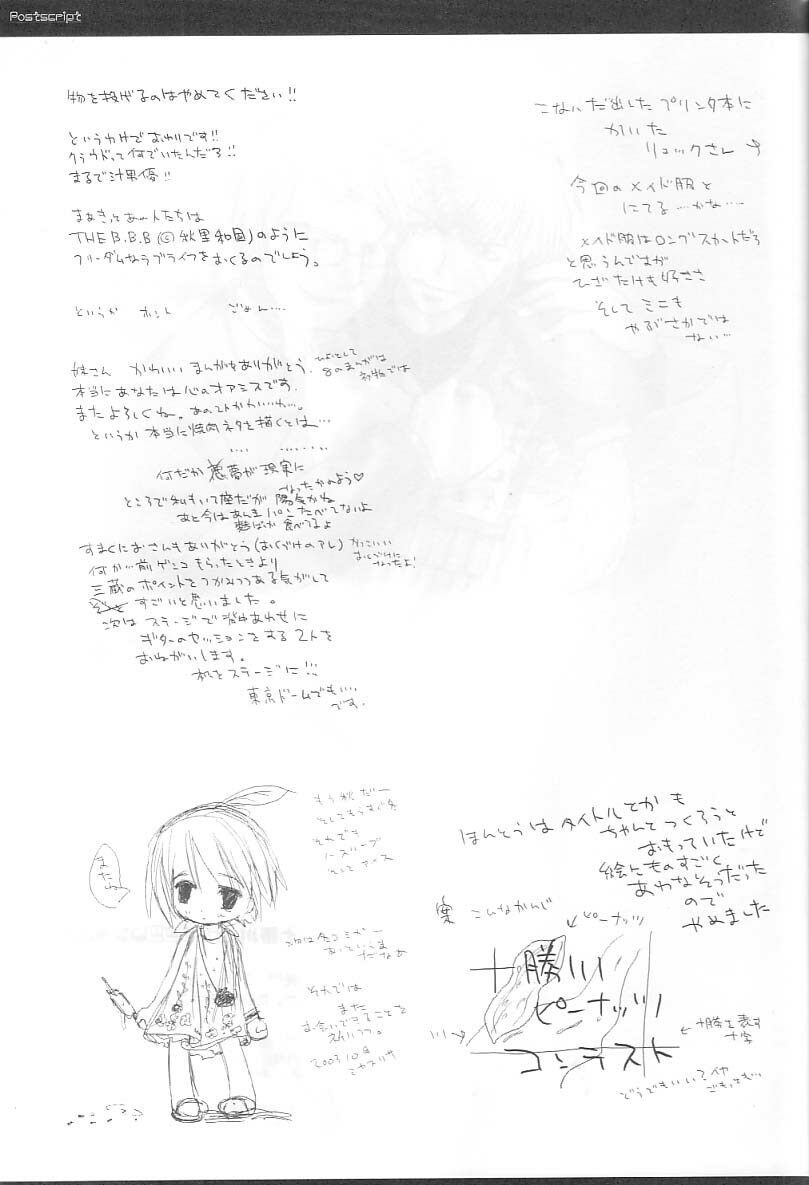 Postscript
物を投げるのはやめてください!!
というわけでおわりです!!
クラウドって何でいたんだろ!!
まるで汁果優!!
まぁきっとあの人たちは
THE B.B.B (ⓒ秋里和国)のように
フリーダムなラブライフをおくるのでしょう。
というか ホント ごめん…
妹さん かわいいまんがをありがとう。
本当にあなたは心のオアシスです。
またよろしくね。
というか本当に焼肉ネタを描くとは…
何だか悪夢が現実に
なったかのよう♡
ところで私もいて座だが 陽気かね
あと今はあんまパンたべてないよ
麺ばっか食べてるよ
すまくにおさんもありがとう(おくづけのアレ)
かっこいい
おくづけに
なったよ!
何か…前ゲンコもらったときより
三蔵のポイントをつかみつつある気がして
すごいと思いました。
次はステージで背中あわせに
ギターのセッションをする2人を
おねがいします。
私をステージに!!!
東京ドームでも…
です。
こないだ出したプリンタ本に
かいた
リュックさん
今回のメイド服と
にてる…かな…
メイド服はロングスカートだろ
と思うんですが
ひざたけも好きさ
そしてミニも
やぶさかでは
ない…
またね
もう秋だー
そしてもうすぐ冬
それでも
ノースリーブ
そしてアイス
それでは
また
お会いできることを
祈りつつ。
2003 10月
ほんとうはタイトルとかも
ちゃんとつくろうと
おもっていたけど
絵にものすごく
あわなそうだった
ので
やめました
案 こんなかんじ
←ピーナッツ
十勝川
ピーナッツ
コンテスト
川→
←十勝を表す
十字
どうでもいい?や
ごもっとも…